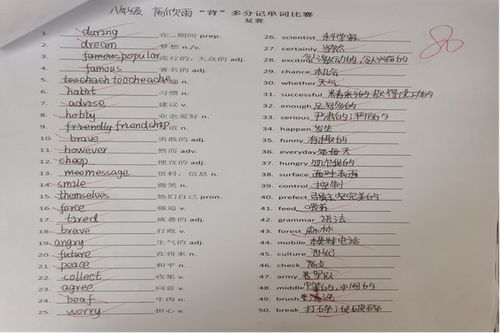 八年级 高欣雨 “背”多分记单词比赛
复赛
1. during 在…期间 prep.
2. dream 梦想 n./v.
3. famous popular 流行的，大众的 adj.
4. famous 著名的 adj.
5. toochach toocheache n.
6. habit 习惯 n.
7. advise 建议 v.
8. hobby 业余爱好 n.
9. friendly friendship 友谊 n.
10. brave 勇敢的 adj.
11. however 然而 adv.
12. cheap 便宜的 adj.
13. meemessage 资料，信息 n.
14. smile 微笑 n.
15. themselves 他们自己 pron.
16. force 强迫 v.
17. tired 疲惫的 adj.
18. brave 打败 v.
19. angry 生气的 adj.
20. future 在将来 n.
21. peace 和平 n.
22. collect 收集 v.
23. agree 同意 v.
24. beaf 牛肉 n.
25. worry 担心 v.
26. scientist 科学家
27. certainly 当然
28. exciting
29. chance 机会
30. whether 天气
31. successful
32. enough 足够多的
33. serious 严肃的；严厉的
34. happen 发生
35. funny 有趣的
36. everyday 每天
37. hungry 饥饿的
38. surface 面对 表面
39. control 控制
40. prefect 完美的
41. feed 喂养
42. grammar 语法
43. forest 森林
44. mobile 电话
45. culture
46. check
47. army 军队
48. middle 中间的
49. brush
50. break 打碎；使破碎